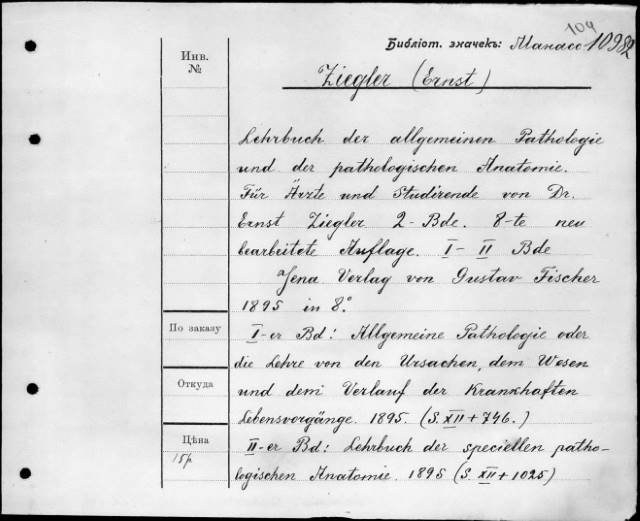 104
Библіот. значекъ: Манасс 10982
Инв.
№
Ziegler (Ernst)
Lehrbuch der allgemeinen Pathologie
und der pathologischen Anatomie.
Für Ärzte und Studirende von Dr.
Ernst Ziegler. 2-Bde. 8-te neu
bearbeitete Auflage. I-II Bde
Jena Verlag von Gustav Fischer
1895 in 8°
По заказу
I-er Bd: Allgemeine Pathologie oder
die Lehre von den Ursachen, dem Wesen
Откуда
und dem Verlauf der Krankhaften
Lebensvorgänge. 1895. (S. XII + 746.)
Цѣна
15р
II-er Bd: Lehrbuch der speciellen patho-
logischen Anatomie. 1895 (S. XII + 1025)